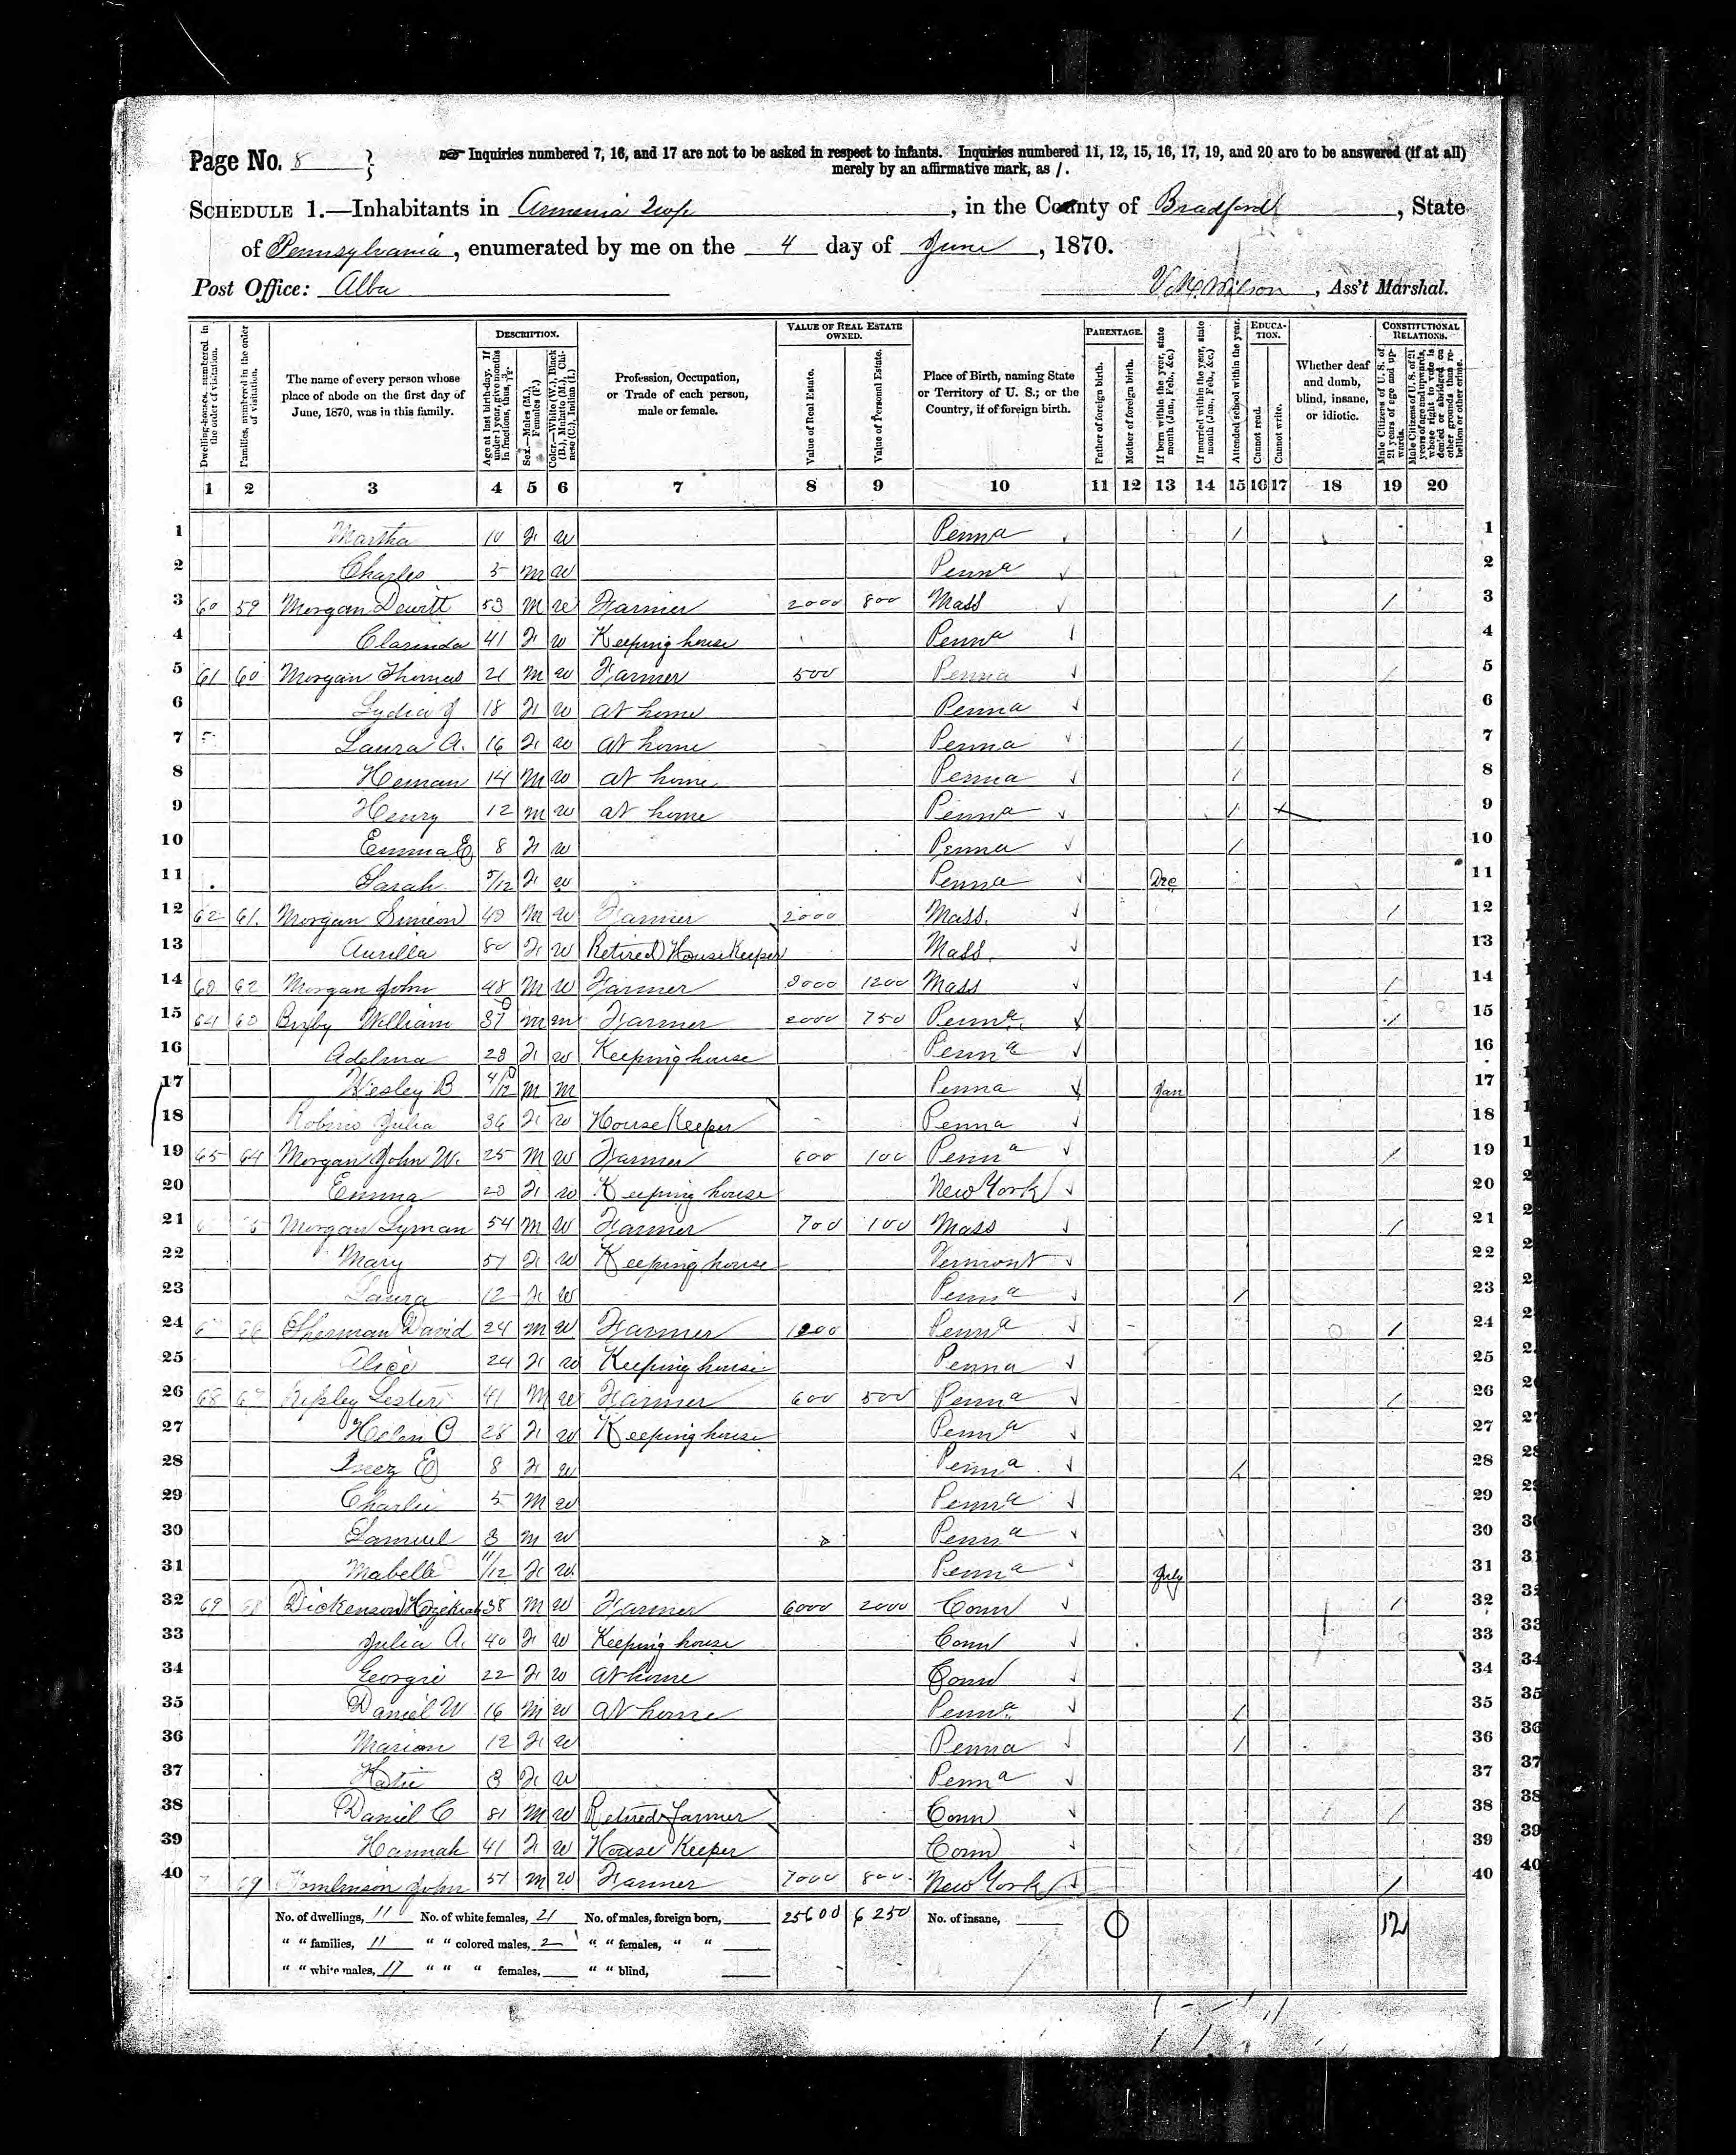 Page No. 8
Inquiries numbered 7, 16, and 17 are not to be asked in respect to infants. Inquiries numbered 11, 12, 15, 16, 17, 19, and 20 are to be answered (if at all)
merely by an affirmative mark, as /.
SCHEDULE 1.—Inhabitants in Armenia Twp, in the County of Bradford, State
of Pennsylvania, enumerated by me on the 4 day of June, 1870.
Post Office: Alba
Wilson, Ass't Marshal.
Dwelling-houses, numbered in the order of visitation.
Families, numbered in the order of visitation.
The name of every person whose place of abode on the first day of June, 1870, was in this family.
DESCRIPTION.
Age at last birth-day. If under 1 year, give months in fractions, thus, 3/12.
Sex.—Males (M.), Females (F.)
Color.—White (W.), Black (B.), Mulatto (M.), Chinese (C.), Indian (I.)
Profession, Occupation, or Trade of each person, male or female.
VALUE OF REAL ESTATE OWNED.
Value of Real Estate.
Value of Personal Estate.
Place of Birth, naming State or Territory of U. S.; or the Country, if of foreign birth.
PARENTAGE.
Father of foreign birth.
Mother of foreign birth.
If born within the year, state month (Jan., Feb., &c.)
If married within the year, state month (Jan., Feb., &c.)
Attended school within the year.
EDUCATION.
Cannot read.
Cannot write.
Whether deaf and dumb, blind, insane, or idiotic.
CONSTITUTIONAL RELATIONS.
Male Citizens of U. S. of 21 years of age and upwards.
Male Citizens of U. S. of 21 years of age and upwards, whose right to vote is denied or abridged on other grounds than rebellion or other crime.
1 2 3 4 5 6 7 8 9 10 11 12 13 14 15 16 17 18 19 20
1 Martha 10 F W Penna / 1
2 Charles 5 M W Penna 2
3 60 59 Morgan Dewitt 53 M W Farmer 2000 800 Mass / 3
4 Clarinda 41 F W Keeping house Penna 4
5 61 60 Morgan Thomas 21 M W Farmer 500 Penna / 5
6 Lydia J 18 F W at home Penna 6
7 Laura A. 16 F W at home Penna / 7
8 Heman 14 M W at home Penna / 8
9 Henry 12 M W at home Penna / 9
10 Emma E 8 F W Penna / 10
11 Sarah 5/12 F W Penna Dec 11
12 62 61 Morgan Simeon M W Farmer 2000 Mass. / 12
13 Aurilla 80 F W Retired HouseKeeper Mass. 13
14 62 Morgan John 48 M W Farmer 1200 Mass / 14
15 64 William M M Farmer 2000 750 Penna / 15
16 Adelma F W Keeping house Penna 16
17 Wesley B 4/12 M M Penna Jan 17
18 Julia 36 F W House Keeper Penna 18
19 65 64 Morgan John W. 25 M W Farmer 600 100 Penna / 19
20 Emma F W Keeping house New York 20
21 Morgan Lyman 54 M W Farmer 700 100 Mass / 21
22 Mary 51 F W Keeping house Vermont 22
23 Laura 12 F W Penna / 23
24 Sherman David 24 M W Farmer Penna / 24
25 Alice 24 F W Keeping house Penna 25
26 68 67 Ripley Lester 41 M W Farmer 600 500 Penna / 26
27 Helen 28 F W Keeping house Penna 27
28 Inez E 8 F W Penna / 28
29 Charlie 5 M W Penna 29
30 Samuel 3 M W Penna 30
31 Mabelle 11/12 F W Penna July 31
32 69 68 Dickenson Hezekiah 38 M W Farmer 6000 2000 Conn / 32
33 Julia A. 40 F W Keeping house Conn 33
34 Georgie 22 F W at home Conn 34
35 Daniel W 16 M W at home Penna / 35
36 Marion 12 F W Penna / 36
37 Katie 3 F W Penna 37
38 Daniel C 81 M W Retired Farmer Conn / 38
39 Hannah 41 F W House Keeper Conn 39
40 69 Tomlinson John 51 M W Farmer 7000 800 New York / 40
No. of dwellings, 11 No. of white females, 21 No. of males, foreign born, 25600 6250 No. of insane, 12
" " families, 11 " " colored males, 2 " " females, " "
" " white males, 17 " " " females, " " blind,